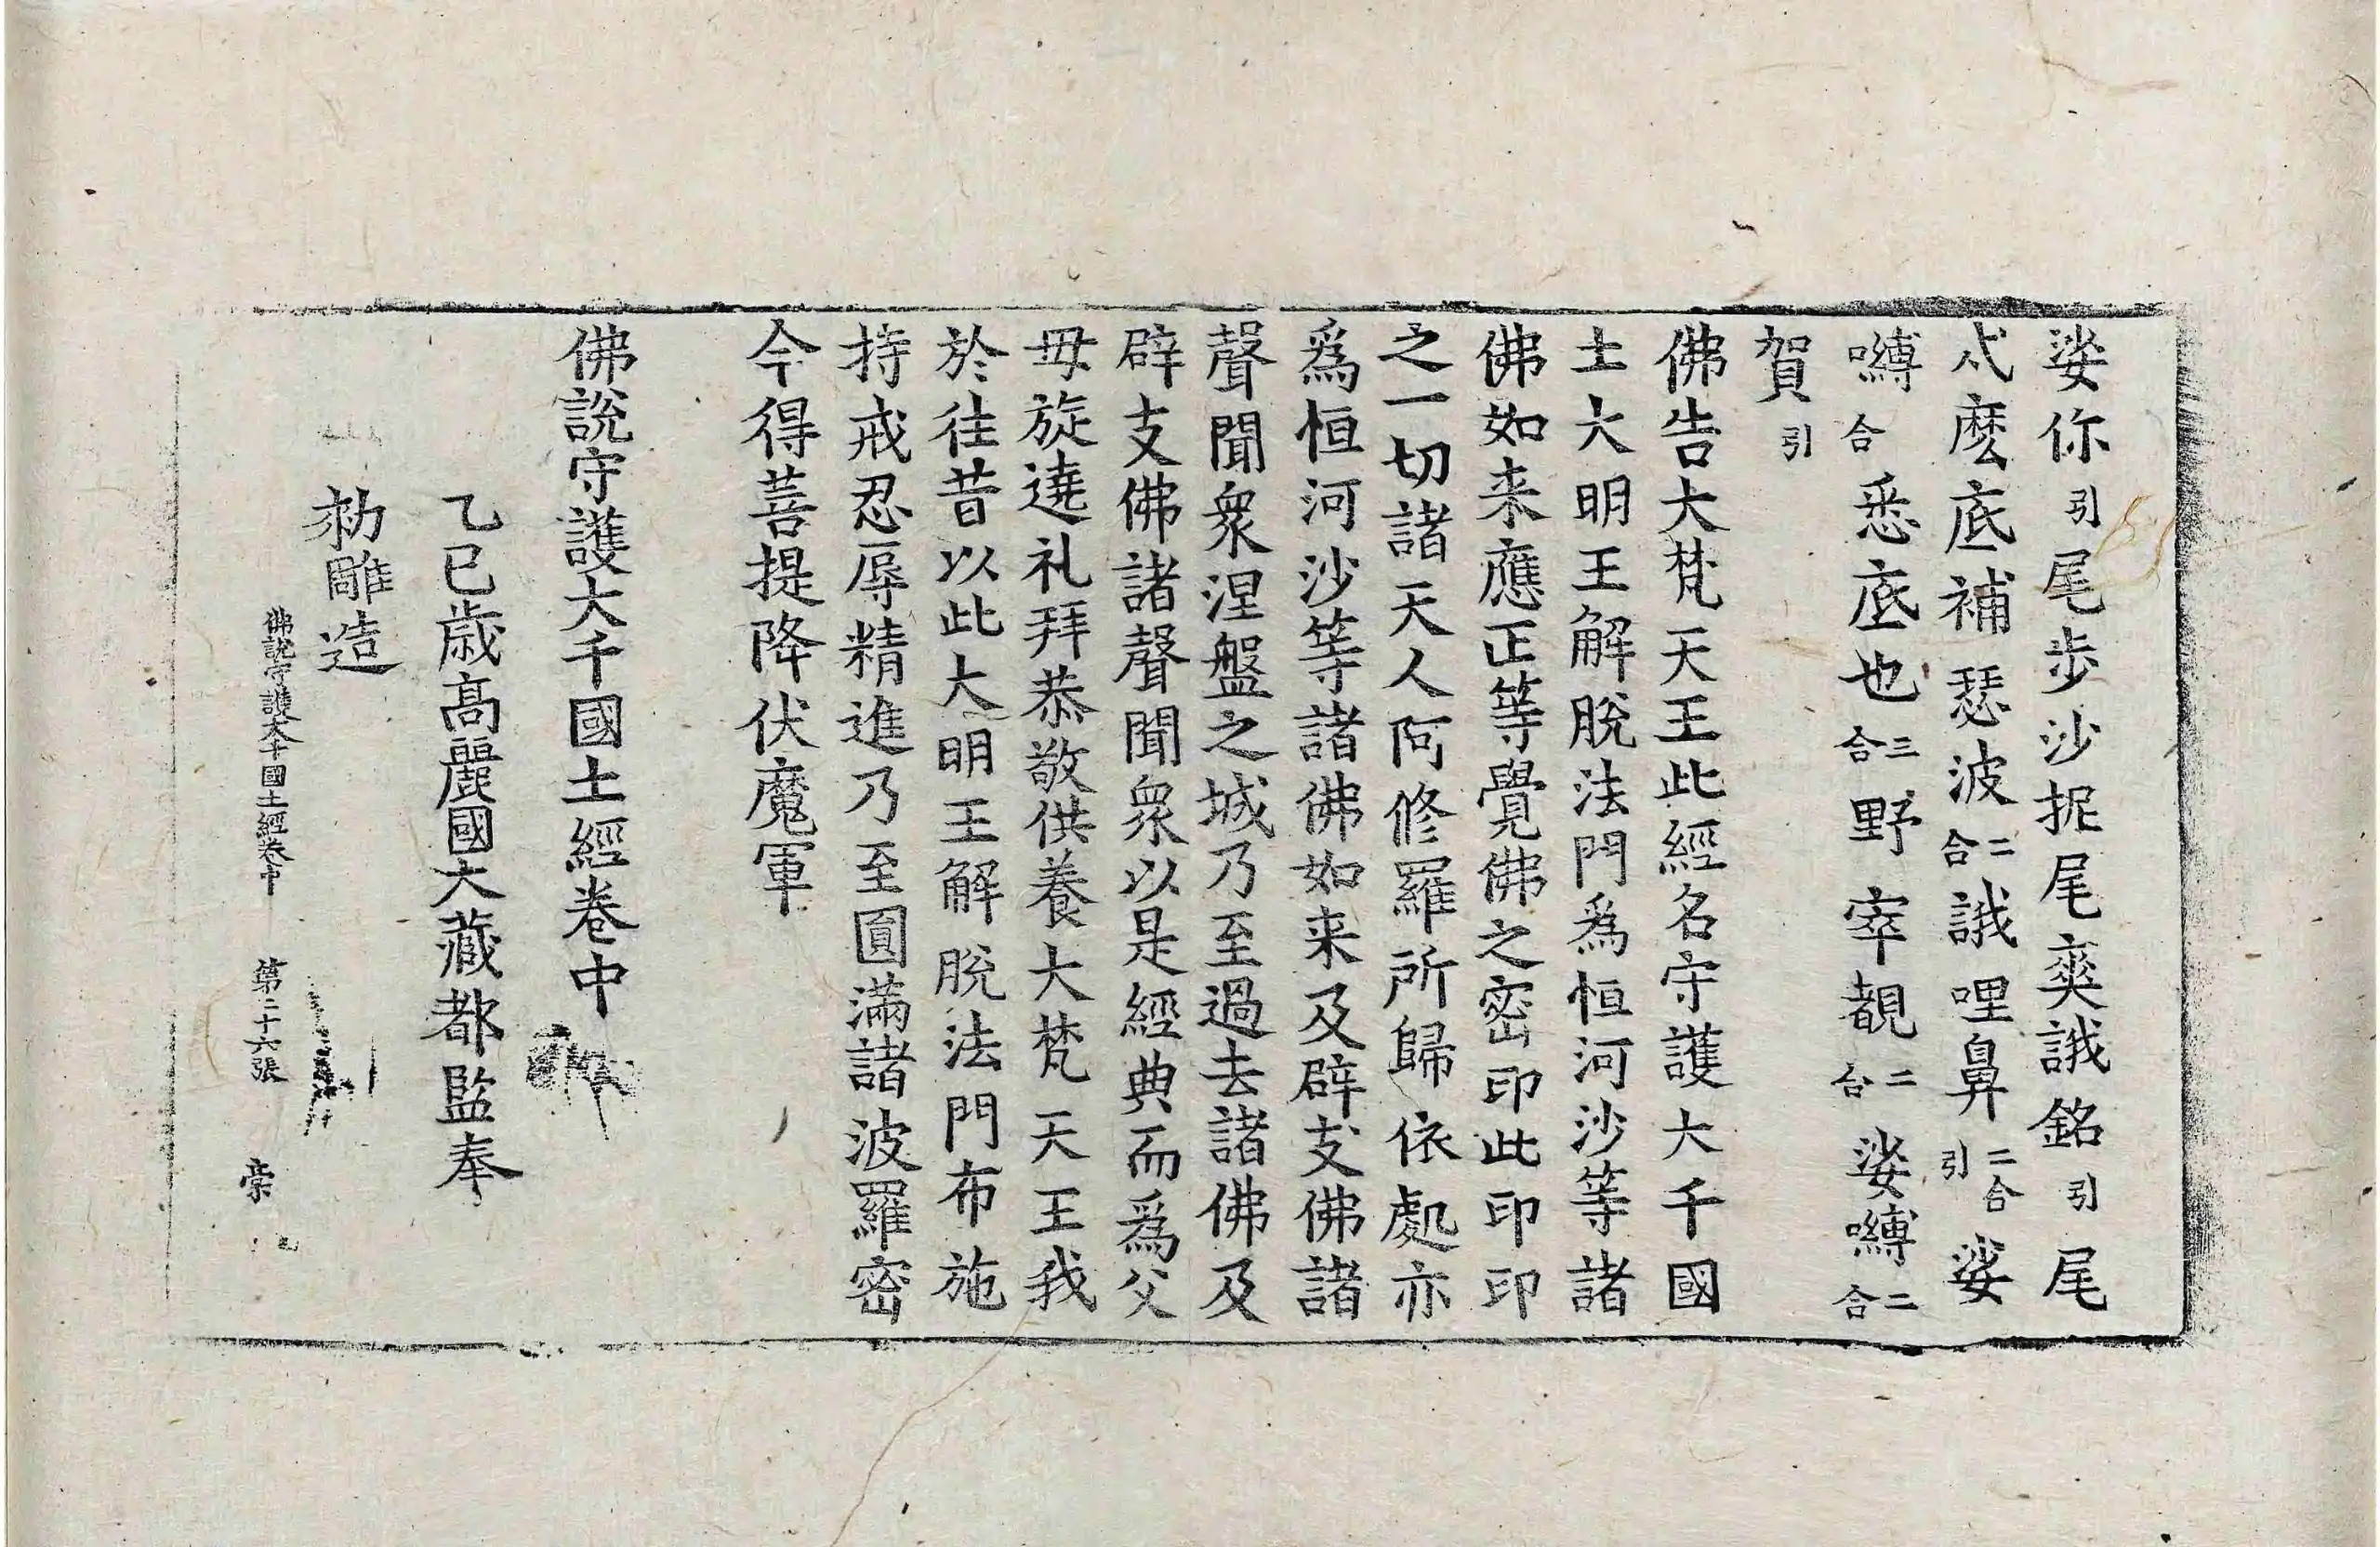 娑你引尾步沙抳尾奭誐銘引尾
忒麽底補瑟波二合誐哩鼻二合引娑
嚩合悉底也三合野窣覩二合娑嚩二合
賀引
佛告大梵天王此經名守護大千國
土大明王解脫法門爲恒河沙等諸
佛如来應正等覺佛之密印此印印
之一切諸天人阿修羅所歸依處亦
爲恒河沙等諸佛如来及辟支佛諸
聲聞衆涅盤之城乃至過去諸佛及
辟支佛諸聲聞衆以是經典而爲父
母旋遶礼拜恭敬供養大梵天王我
於往昔以此大明王解脫法門布施
持戒忍辱精進乃至圓滿諸波羅密
今得菩提降伏魔軍
佛說守護大千國土經卷中
乙巳歲高麗國大藏都監奉
勑雕造
佛說守護大千國土經卷中 第二十六張